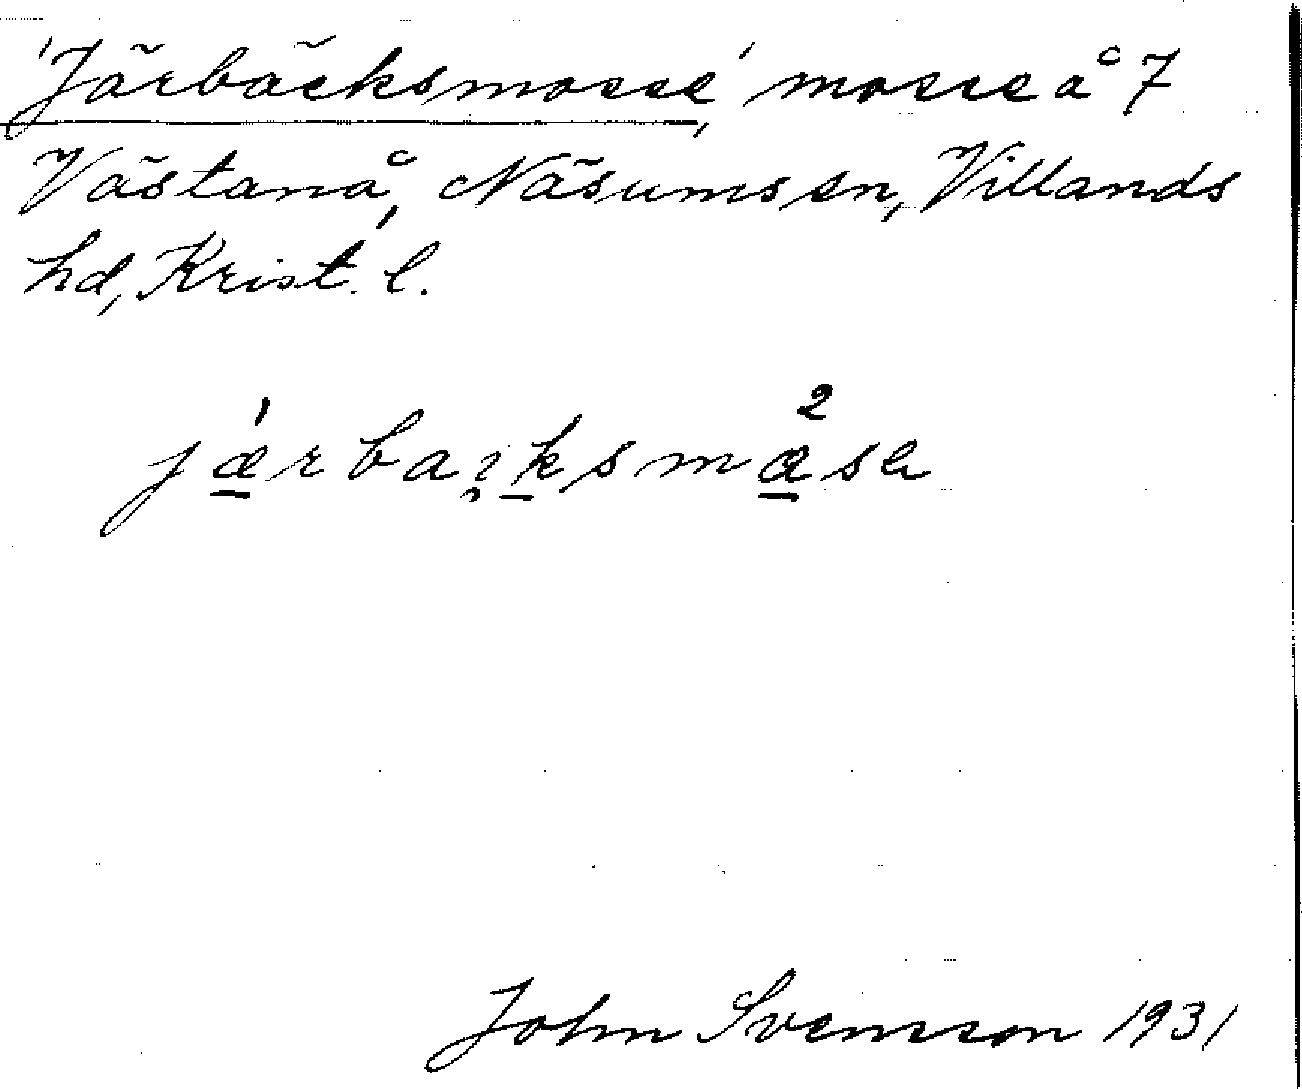 'Järbäcksmosse' mosse å 7
Västanå, Näsums sn, Villands
hd, Krist. l.
jǽ̲rbai̯k̲smæ̲²sa
John Svensson 1931